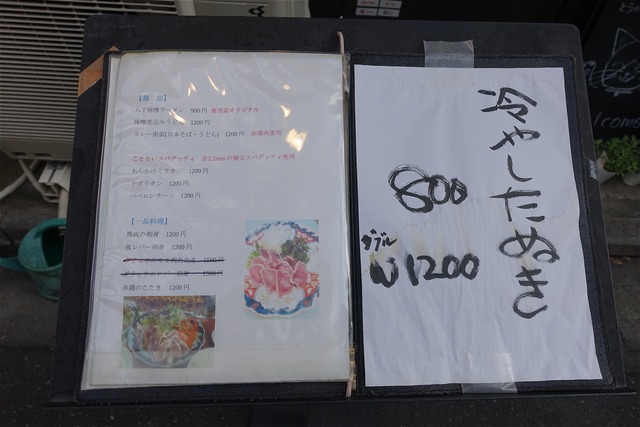 【麺 類】
八丁味噌ラーメン 900円 ※当店オリジナル
味噌煮込みうどん 1200円
カレー南蛮(日本そば・うどん) 1200円 ※鶏肉使用
ことといスパゲッティ ※2.2mmの極太スパゲッティ使用
あんかけミラカン 1200円
ナポリタン 1200円
ペペロンチーノ 1200円
【一品料理】
馬肉の刺身 1200円
馬レバー刺身 1200円
1500円
1500円
赤鶏のたたき 1200円
冷やしたぬき
800
ダブル
1200
elcome